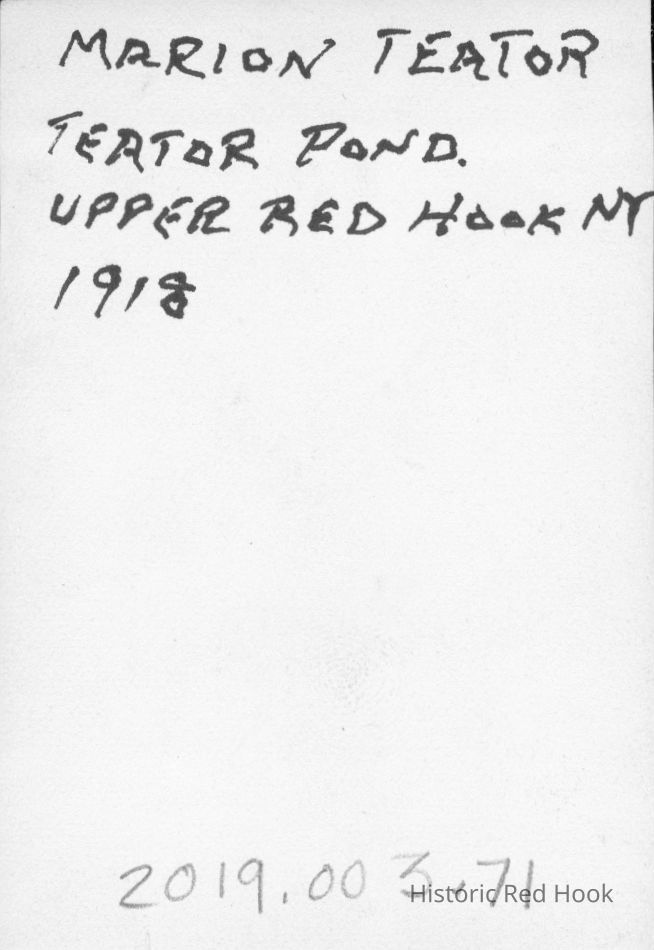 MARION TEATOR
TEATOR POND.
UPPER RED HOOK NY
1918
2019.003.71
Historic Red Hook